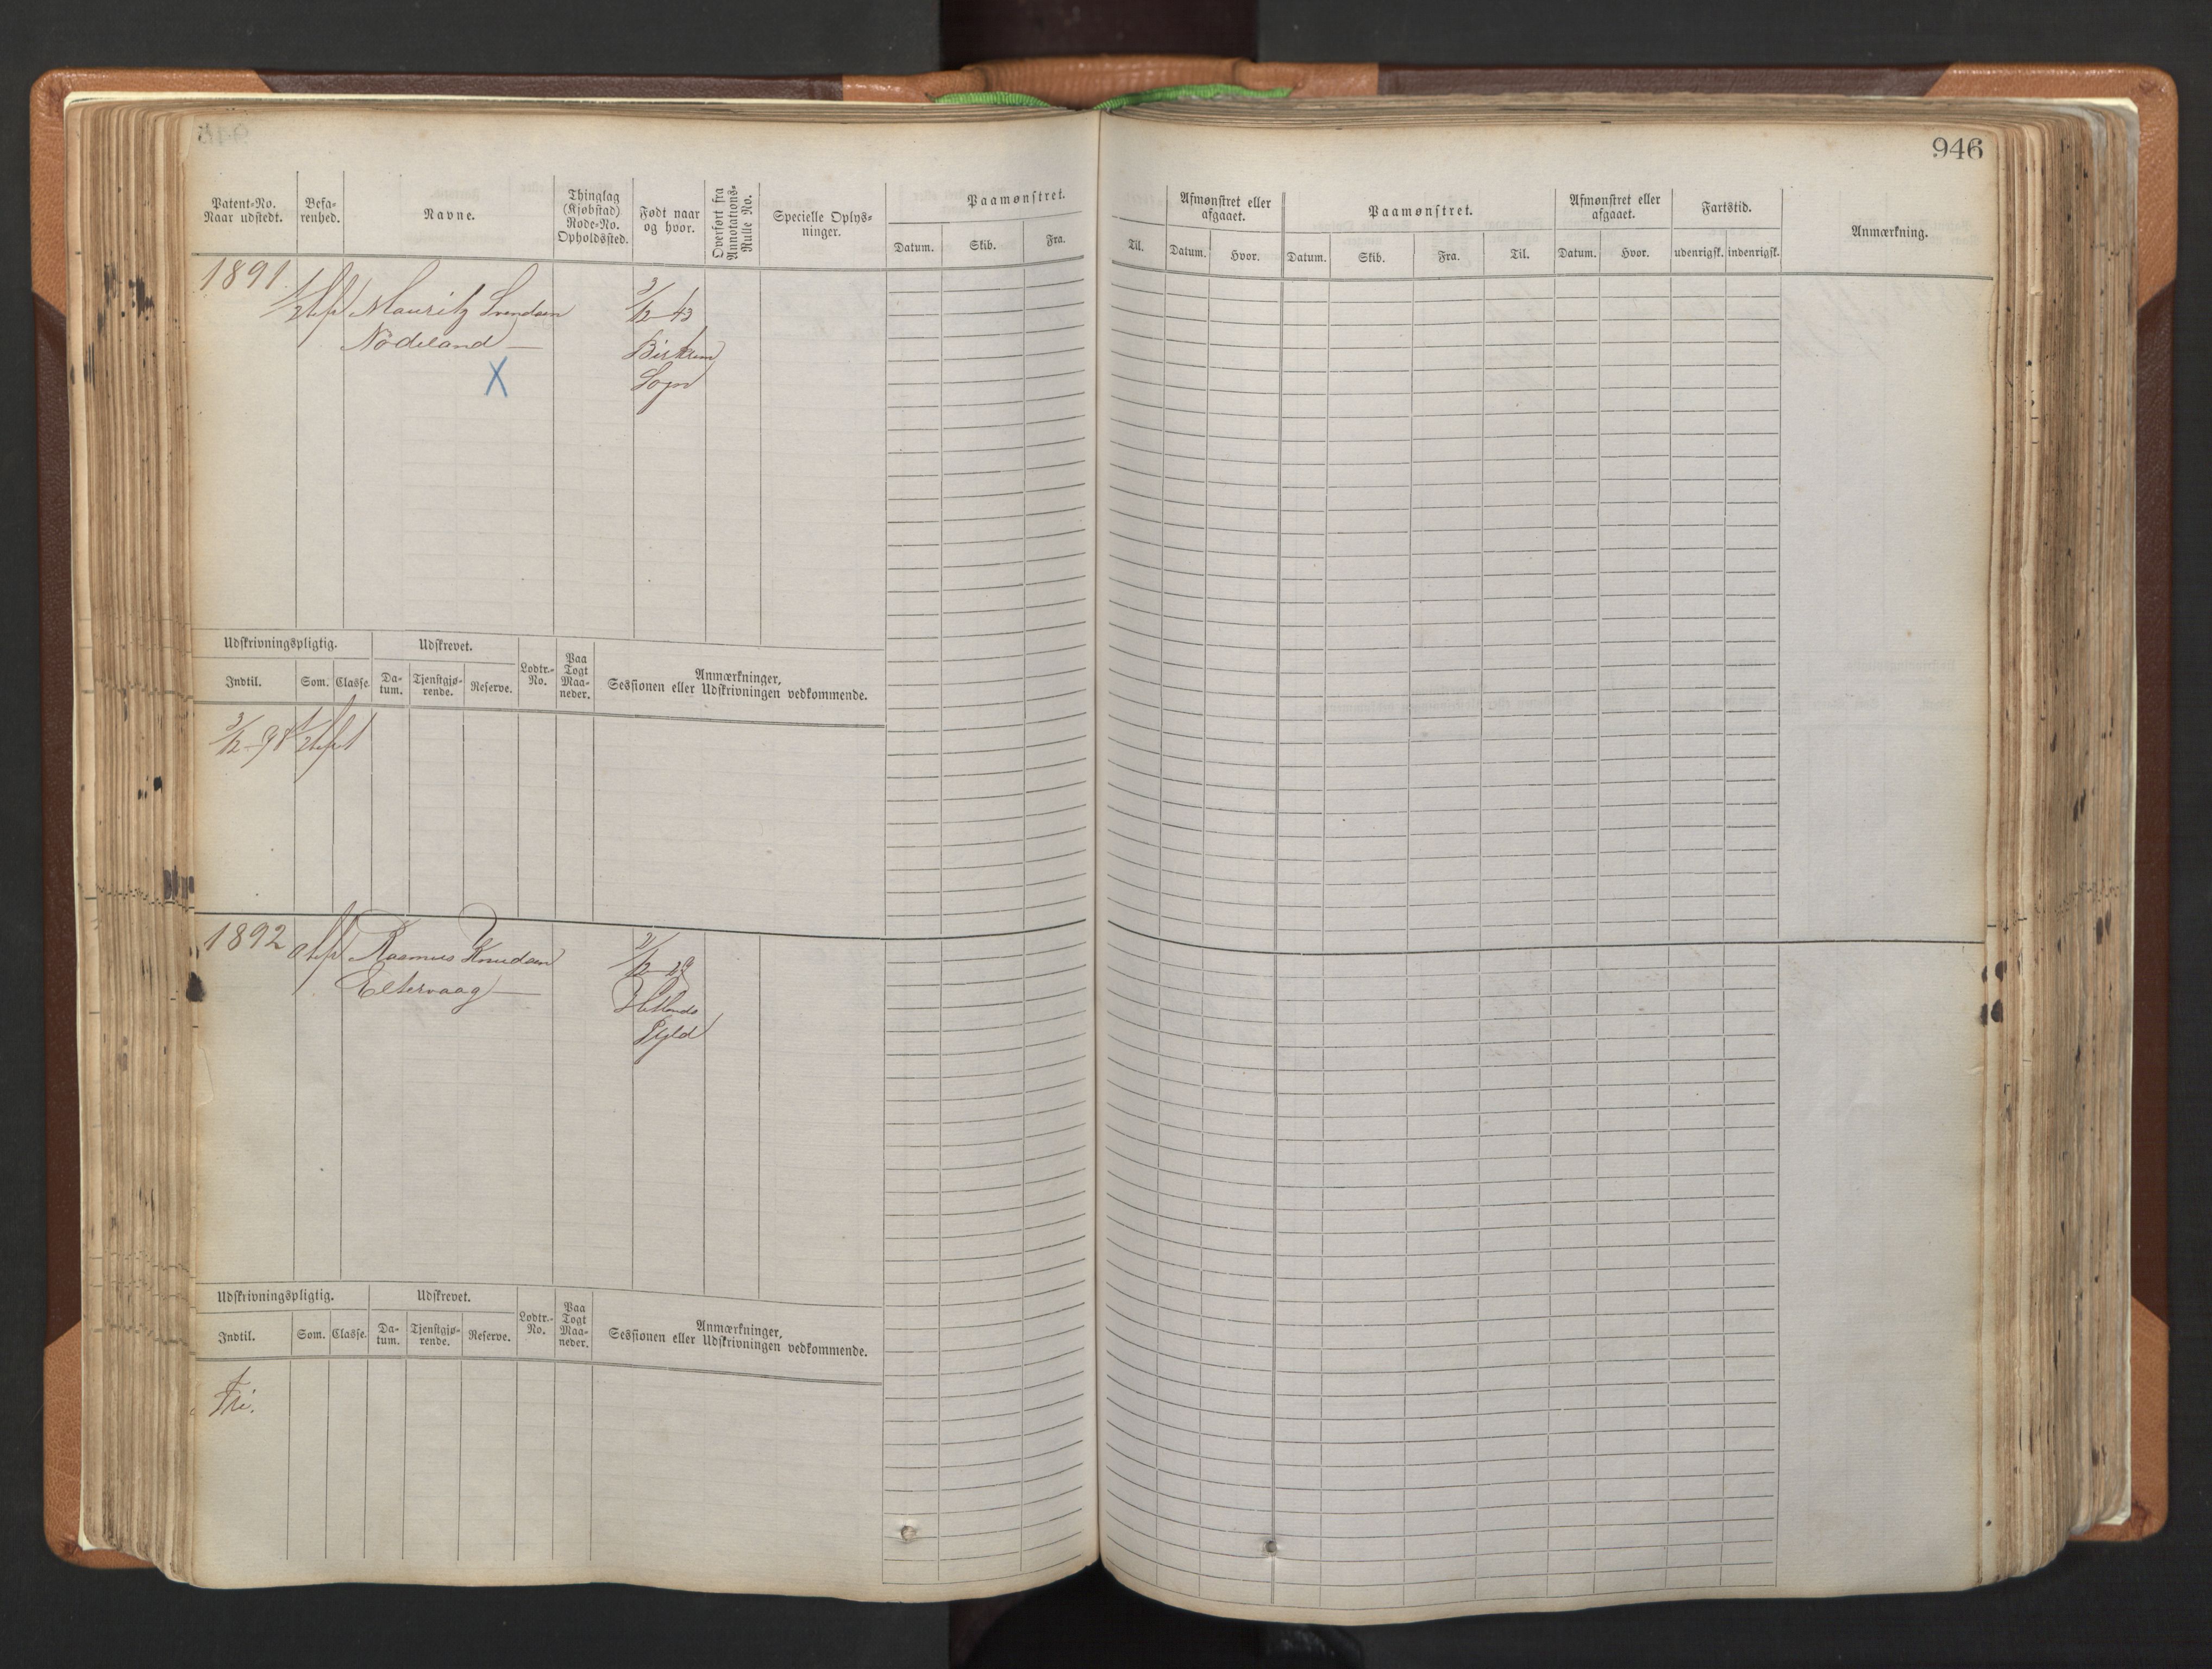 946
Patent-No. Naar udstedt.
Befa-renhed.
Navne.
Thinglag (Kjøbstad) Rode-No. Opholdssted.
Født naar og hvor.
Overført fra Annotations-Rulle No.
Specielle Oplys-ninger.
Paamønstret.
Datum.
Skib.
Fra.
Til.
Afmønstret eller afgaaet.
Datum.
Hvor.
Paamønstret.
Datum.
Skib.
Fra.
Til.
Afmønstret eller afgaaet.
Datum.
Hvor.
Fartstid.
udenrigsk.
indenrigsk.
Anmærkning.
1891.
Mauritz Svendsen
Nodeland
X
2/12 43
Birkrem
Sogn
Udskrivningspligtig.
Indtil.
Som.
Classe.
Udskrevet.
Da-tum.
Tjenstgjø-rende.
Reserve.
Lodtr.-No.
Paa Togt Maa-neder.
Anmærkninger,
Sessionen eller Udskrivningen vedkommende.
1892
Rasmus Knudsen
Eltervaag
2/12 29
Hetlands
Udskrivningspligtig.
Indtil.
Som.
Classe.
Udskrevet.
Da-tum.
Tjenstgjø-rende.
Reserve.
Lodtr.-No.
Paa Togt Maa-neder.
Anmærkninger,
Sessionen eller Udskrivningen vedkommende.
Fri.